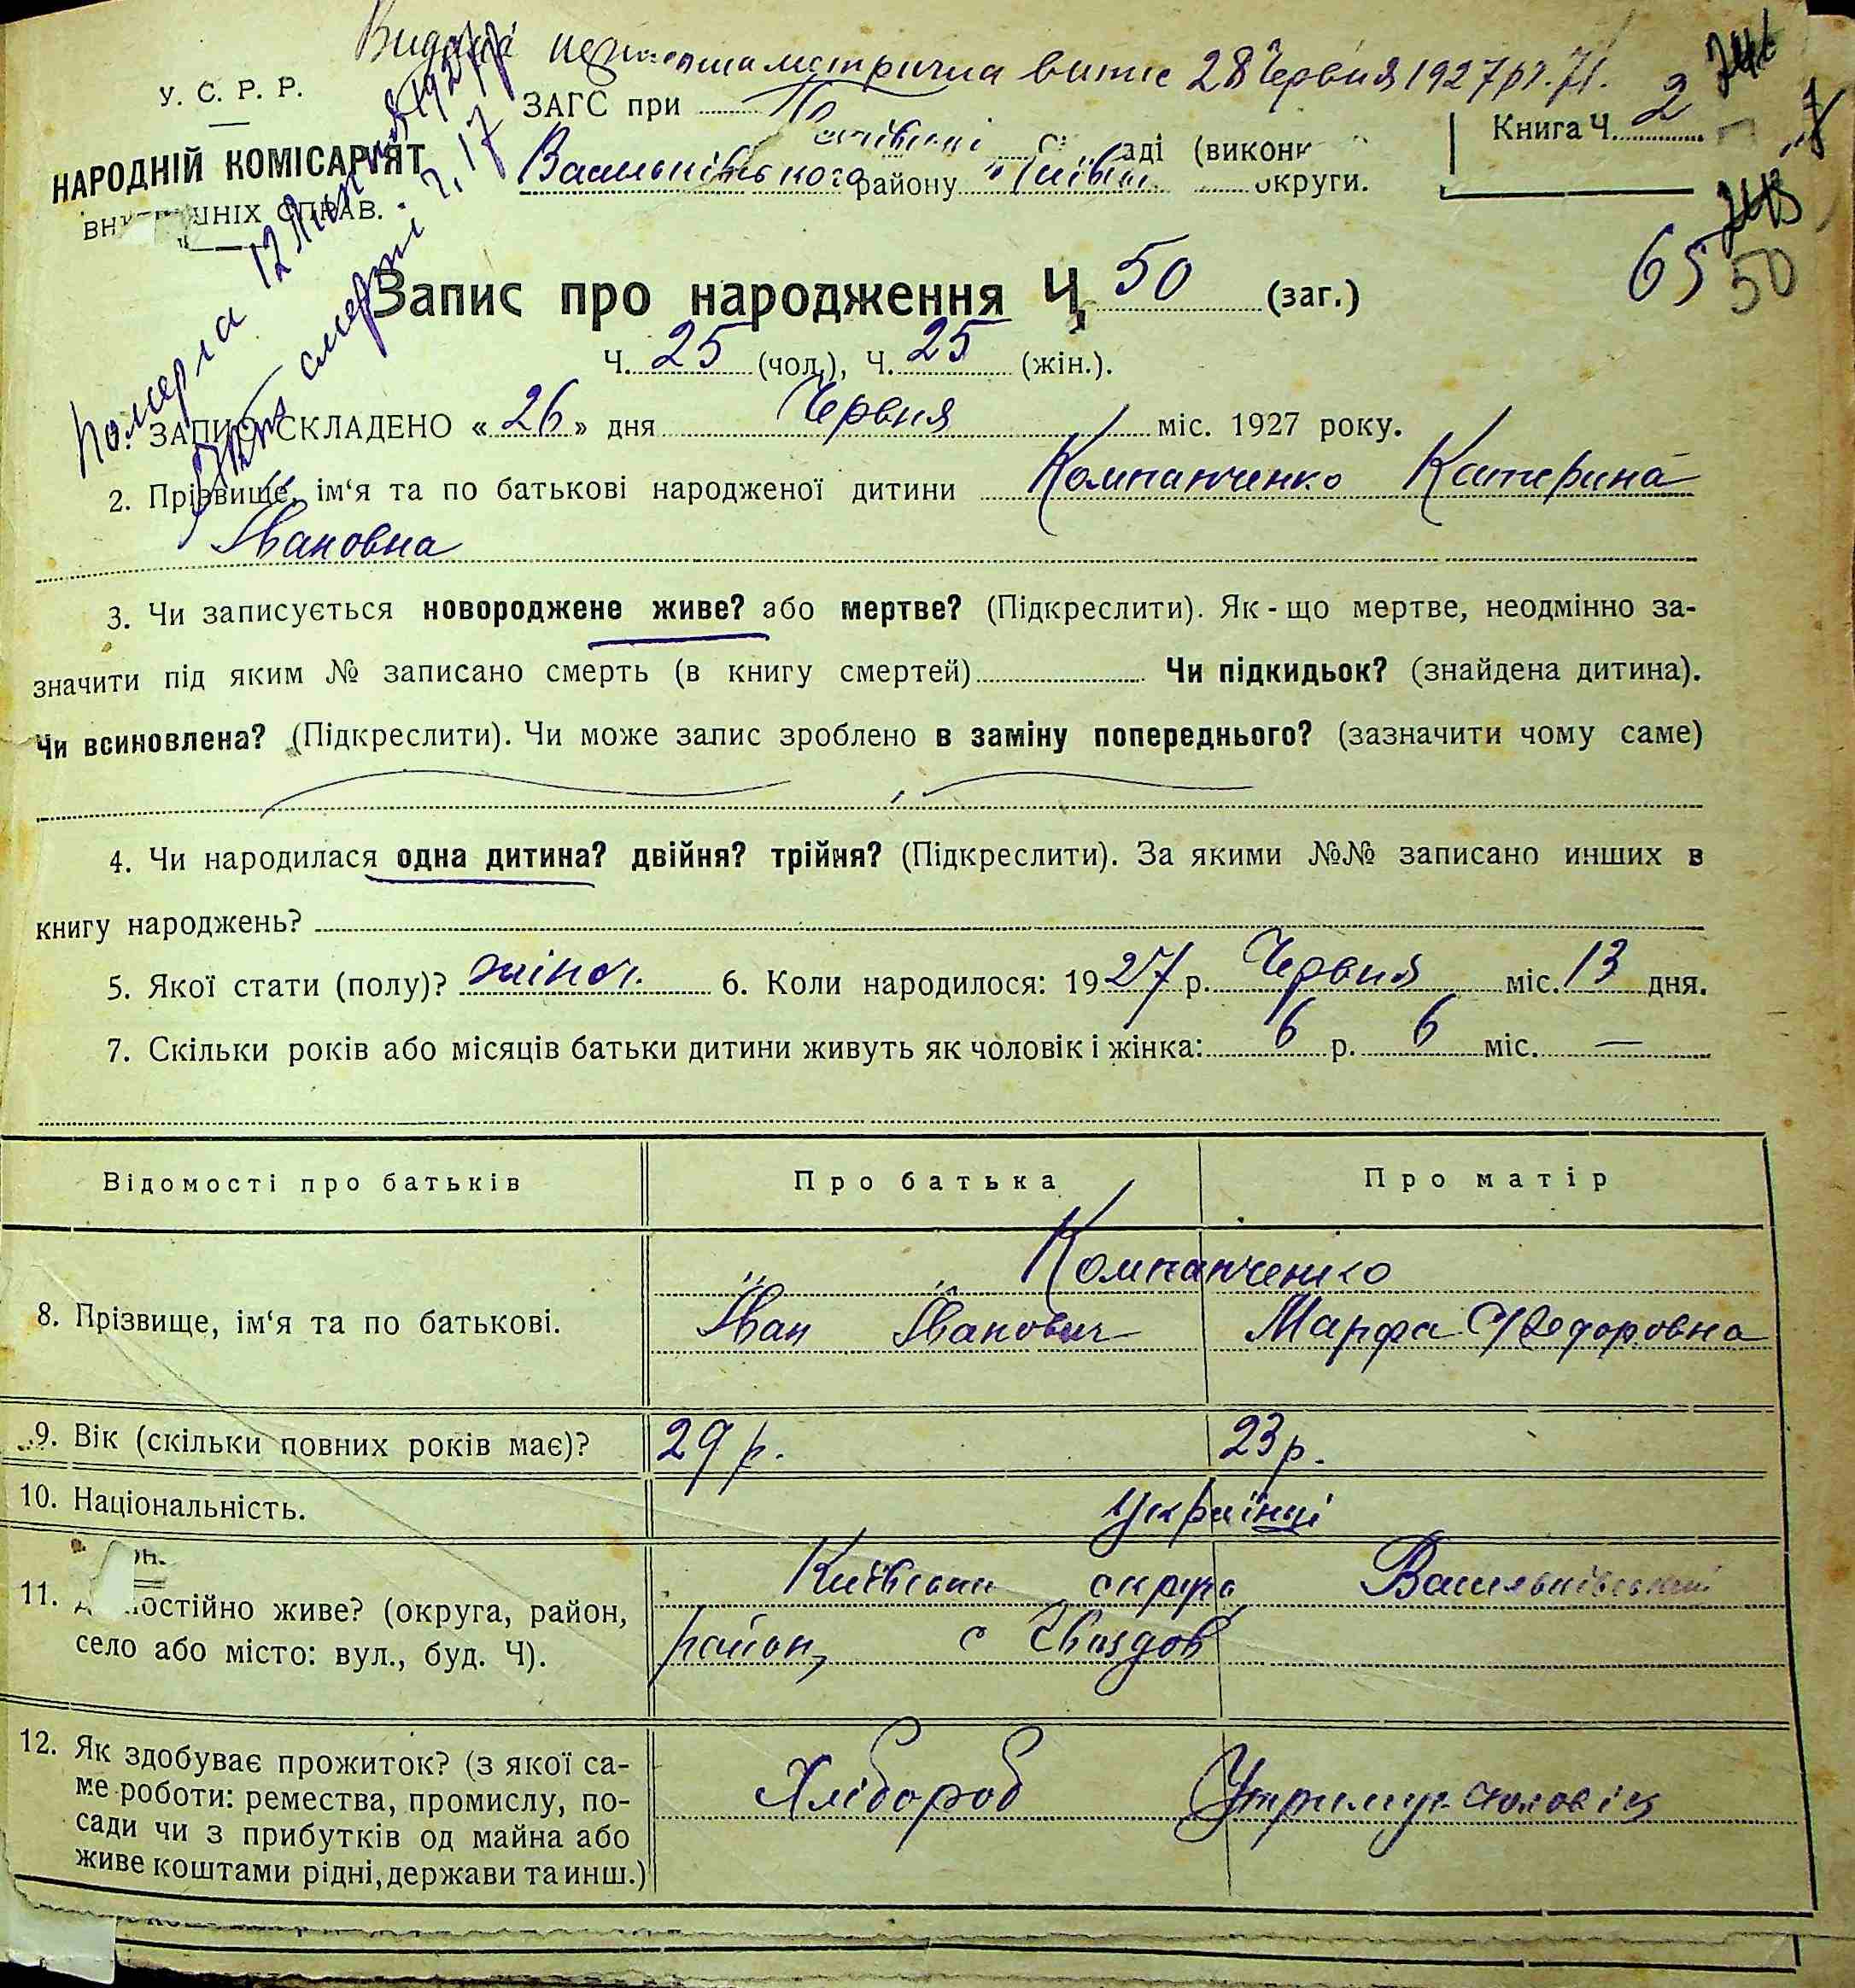 Видана метрична випис 28 Червня 1927 р.
У. С. Р. Р.
НАРОДНІЙ КОМІСАРІЯТ
ВНУ ШНІХ СПРАВ.
ЗАГС при
аді (викон
Васильківського району Київськ округи.
Книга Ч. 2
Померла 12 Липня 1927 р.
смерти ч. 17
65
50
Запис про народження Ч. 50 (заг.)
Ч. 25 (чол.), Ч. 25 (жін.).
ЗАПИС СКЛАДЕНО « 26 » дня Червня міс. 1927 року.
2. Прізвище, ім‘я та по батькові народженої дитини Компанченко Катерина
Івановна
3. Чи записується новороджене живе? або мертве? (Підкреслити). Як-що мертве, неодмінно за-
значити під яким № записано смерть (в книгу смертей) Чи підкидьок? (знайдена дитина).
Чи всиновлена? (Підкреслити). Чи може запис зроблено в заміну попереднього? (зазначити чому саме)
4. Чи народилася одна дитина? двійня? трійня? (Підкреслити). За якими №№ записано инших в
книгу народжень?
5. Якої стати (полу)? жіноч. 6. Коли народилося: 1927 р. Червня міс. 13 дня.
7. Скільки років або місяців батьки дитини живуть як чоловік і жінка: 6 р. 6 міс. —
Відомості про батьків Про батька Про матір
Компанченко
8. Прізвище, ім‘я та по батькові. Іван Іванович Марфа Федоровна
9. Вік (скільки повних років має)? 29 р. 23 р.
10. Національність. Українці
11. Київська округа Васильківський
остійно живе? (округа, район, район, с Гвоздов
село або місто: вул., буд. Ч).
12. Як здобуває прожиток? (з якої са-
ме роботи: ремества, промислу, по- Хлібороб Утриму. чоловік
сади чи з прибутків од майна або
живе коштами рідні, держави та инш.)